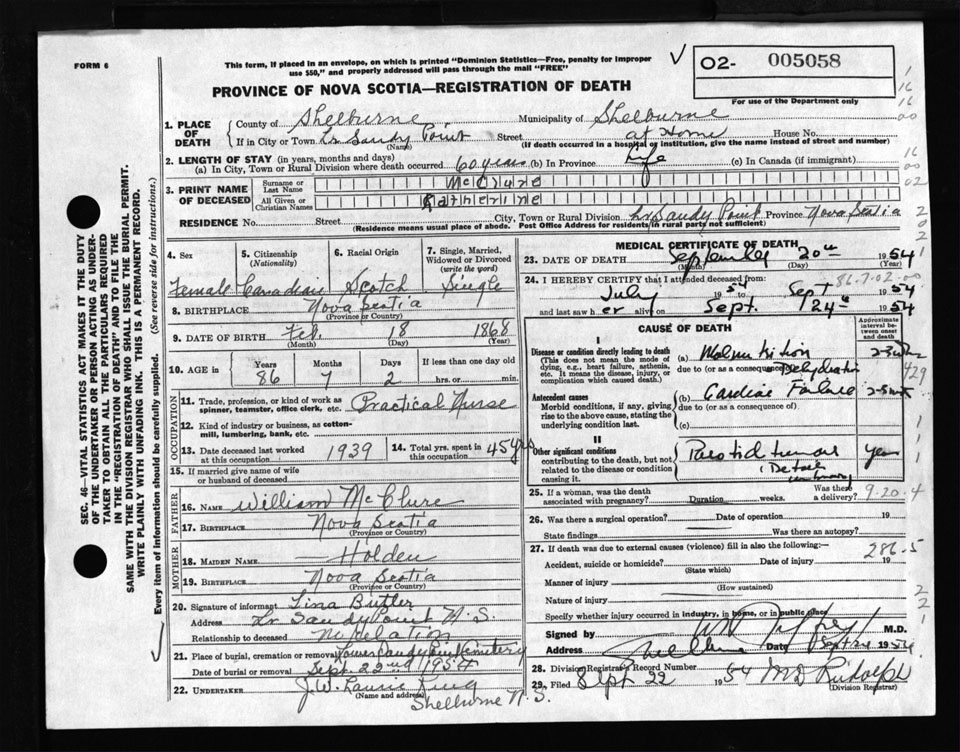 FORM 6
This form, if placed in an envelope, on which is printed "Dominion Statistics—Free, penalty for improper
use $50," and properly addressed will pass through the mail "FREE"
O2- 005058
For use of the Department only
PROVINCE OF NOVA SCOTIA—REGISTRATION OF DEATH
1. PLACE OF DEATH
County of Shelburne Municipality of Shelburne
If in City or Town Lr Sandy Point Street at Home House No.
(Name) (If death occurred in a hospital or institution, give the name instead of street and number)
2. LENGTH OF STAY (in years, months and days)
(a) In City, Town or Rural Division where death occurred 60 years (b) In Province Life (c) In Canada (if immigrant)
3. PRINT NAME OF DECEASED
Surname or Last Name McClure
All Given or Christian Names Katherine
RESIDENCE No. Street City, Town or Rural Division Lr Sandy Point Province Nova Scotia
(Residence means usual place of abode. Post Office Address for residents in rural party not sufficient)
4. Sex
Female
5. Citizenship (Nationality)
Canadian
6. Racial Origin
Scotch
7. Single, Married, Widowed or Divorced (write the word)
Single
8. BIRTHPLACE Nova Scotia
(Province or Country)
9. DATE OF BIRTH Feb. 18 1868
(Month) (Day) (Year)
10. AGE in Years Months Days If less than one day old
86 7 2 hrs. or min.
OCCUPATION
11. Trade, profession, or kind of work as spinner, teamster, office clerk, etc. Practical Nurse
12. Kind of industry or business, as cotton-mill, lumbering, bank, etc.
13. Date deceased last worked at this occupation 1939
14. Total yrs. spent in this occupation 45 yrs
15. If married give name of wife or husband of deceased
FATHER
16. NAME William McClure
17. BIRTHPLACE Nova Scotia
(Province or Country)
MOTHER
18. MAIDEN NAME — Holden
19. BIRTHPLACE Nova Scotia
(Province or Country)
20. Signature of informant Tina Butler
Address Lr Sandy Point N.S.
Relationship to deceased No relation
21. Place of burial, cremation or removal Lower Sandy Point Cemetery
Date of burial or removal Sept 22nd 1954
22. UNDERTAKER J.W. Laurie King
(Name and address)
Shelburne N.S.
MEDICAL CERTIFICATE OF DEATH
23. DATE OF DEATH September 20th 1954
(Month) (Day) (Year)
24. I HEREBY CERTIFY that I attended deceased from:
86.7.02.00
July 1954 Sept 1954
and last saw her alive on Sept. 1954
CAUSE OF DEATH
Approximate interval between onset and death
I
Disease or condition directly leading to death
(This does not mean the mode of dying, e.g., heart failure, asthenia, etc. It means the disease, injury, or complication which caused death.)
(a) Malnutrition
due to (or as a consequence of) Dehydration
429
Antecedent causes
Morbid conditions, if any, giving rise to the above cause, stating the underlying condition last.
(b) Cardiac Failure
due to (or as a consequence of)
(c)
II
Other significant conditions
contributing to the death, but not related to the disease or condition causing it.
Parotid tumor
25. If a woman, was the death associated with pregnancy? Duration weeks. Was there a delivery?
9-20-4
26. Was there a surgical operation? Date of operation 19
State findings Was there an autopsy?
27. If death was due to external causes (violence) fill in also the following:—
286-5
Accident, suicide or homicide? Date of injury 19
(State which)
Manner of injury
(How sustained)
Nature of injury
Specify whether injury occurred in industry, in home, or in public place
Signed by M.D.
Address Date Sept 1954
28. Division Registrar Record Number
29. Filed Sept 22 1954 M D Rudolph
(Division Registrar)
SEC. 46—VITAL STATISTICS ACT MAKES IT THE DUTY
OF THE UNDERTAKER OR PERSON ACTING AS UNDER-
TAKER TO OBTAIN ALL THE PARTICULARS REQUIRED
IN THE "REGISTRATION OF DEATH" AND TO FILE THE
SAME WITH THE DIVISION REGISTRAR WHO SHALL ISSUE THE BURIAL PERMIT.
WRITE PLAINLY WITH UNFADING INK. THIS IS A PERMANENT RECORD.
Every item of information should be carefully supplied. (See reverse side for instructions.)